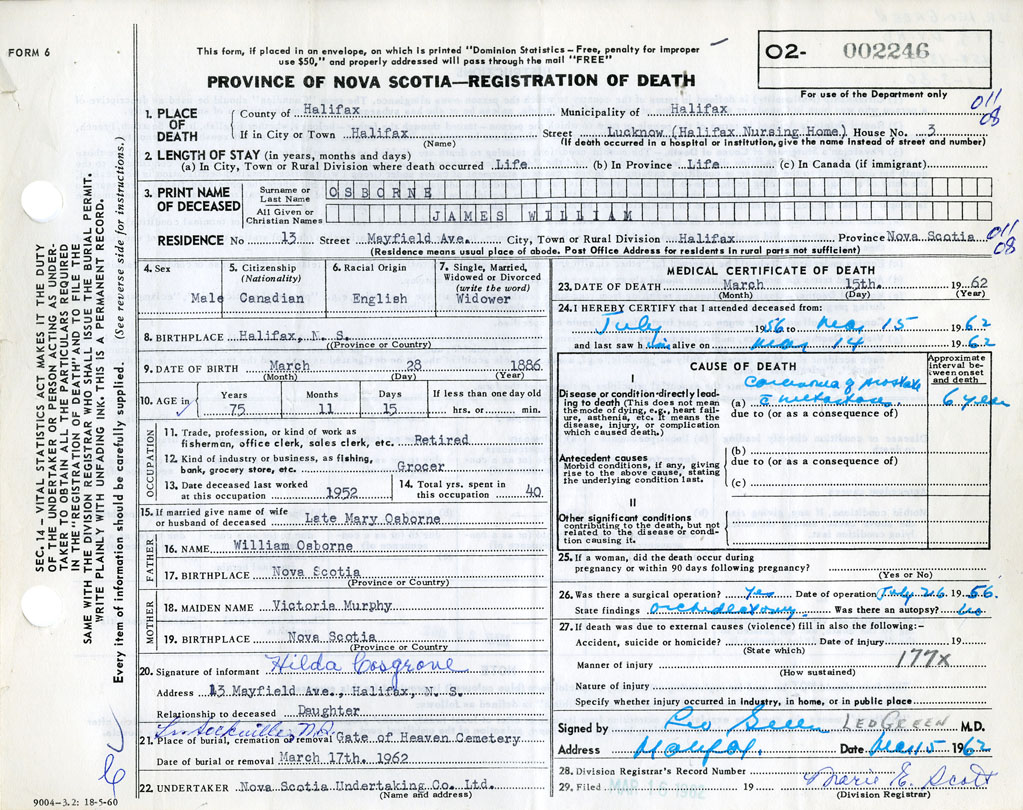 FORM 6
This form, if placed in an envelope, on which is printed "Dominion Statistics – Free, penalty for improper
use $50," and properly addressed will pass through the mail "FREE"
O2- 002246
For use of the Department only
PROVINCE OF NOVA SCOTIA—REGISTRATION OF DEATH
011
08
1. PLACE OF DEATH
County of Halifax Municipality of Halifax
If in City or Town Halifax Street Lucknow (Halifax Nursing Home) House No. 3
(Name) (If death occurred in a hospital or institution, give the name instead of street and number)
2. LENGTH OF STAY (in years, months and days)
(a) In City, Town or Rural Division where death occurred Life (b) In Province Life (c) In Canada (if immigrant)
3. PRINT NAME OF DECEASED
Surname or Last Name OSBORNE
All Given or Christian Names JAMES WILLIAM
RESIDENCE No 13 Street Mayfield Ave. City, Town or Rural Division Halifax Province Nova Scotia
011
08
(Residence means usual place of abode. Post Office Address for residents in rural parts not sufficient)
4. Sex Male
5. Citizenship (Nationality) Canadian
6. Racial Origin English
7. Single, Married, Widowed or Divorced (write the word) Widower
8. BIRTHPLACE Halifax, N. S.
(Province or Country)
9. DATE OF BIRTH March 28 1886
(Month) (Day) (Year)
10. AGE in Years 75 Months 11 Days 15 If less than one day old hrs. or min.
OCCUPATION
11. Trade, profession, or kind of work as
fisherman, office clerk, sales clerk, etc. Retired
12. Kind of industry or business, as fishing,
bank, grocery store, etc. Grocer
13. Date deceased last worked at this occupation 1952
14. Total yrs. spent in this occupation 40
15. If married give name of wife
or husband of deceased Late Mary Osborne
FATHER
16. NAME William Osborne
17. BIRTHPLACE Nova Scotia
(Province or Country)
MOTHER
18. MAIDEN NAME Victoria Murphy
19. BIRTHPLACE Nova Scotia
(Province or Country
20. Signature of informant Hilda Cosgrove
Address 13 Mayfield Ave., Halifax, N. S.
Relationship to deceased Daughter
Sackville, N.S.
21. Place of burial, cremation or removal Gate of Heaven Cemetery
Date of burial or removal March 17th. 1962
22. UNDERTAKER Nova Scotia Undertaking Co. Ltd.
(Name and address)
9004–3.2: 18-5-60
MEDICAL CERTIFICATE OF DEATH
23. DATE OF DEATH March 15th. 19 62
(Month) (Day) (Year)
24. I HEREBY CERTIFY that I attended deceased from:
July 1956 to Mar 15 1962
and last saw him alive on Mar 14 1962
CAUSE OF DEATH
Approximate Interval between onset and death
I
Disease or condition directly leading to death (This does not mean the mode of dying, e.g., heart failure, asthenia, etc. It means the disease, injury, or complication which caused death.)
Carcinoma of prostate
(a) metastases 6 years
due to (or as a consequence of)
Antecedent causes
Morbid conditions, if any, giving rise to the above cause, stating the underlying condition last.
(b)
due to (or as a consequence of)
(c)
II
Other significant conditions
contributing to the death, but not related to the disease or condition causing it.
25. If a woman, did the death occur during
pregnancy or within 90 days following pregnancy?
(Yes or No)
26. Was there a surgical operation? Yes Date of operation July 26 1956
State findings Orchidectomy Was there an autopsy? No
27. If death was due to external causes (violence) fill in also the following:–
Accident, suicide or homicide? Date of injury 19
(State which)
177X
Manner of injury
(How sustained)
Nature of injury
Specify whether injury occurred in industry, in home, or in public place
Signed by Leo Green LEO GREEN M.D.
Address Halifax Date Mar 15 1962
28. Division Registrar's Record Number
29. Filed MAR 16 1962 19 Marie E. Scott
(Division Registrar)
SEC. 14 – VITAL STATISTICS ACT MAKES IT THE DUTY
OF THE UNDERTAKER OR PERSON ACTING AS UNDER-
TAKER TO OBTAIN ALL THE PARTICULARS REQUIRED
IN THE "REGISTRATION OF DEATH" AND TO FILE THE
SAME WITH THE DIVISION REGISTRAR WHO SHALL ISSUE THE BURIAL PERMIT.
WRITE PLAINLY WITH UNFADING INK. THIS IS A PERMANENT RECORD.
Every item of information should be carefully supplied. (See reverse side for instructions.)